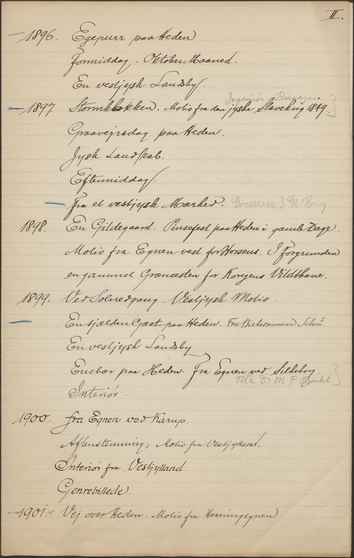 II.
1896. Egepurr paa Heden
Formiddag. Oktober Maaned.
En vestjysk Landsby.
1897 Stormklokken. Motiv fra den jyske Slavekrig 1849.
Graavejrsdag paa Heden.
Jysk Landskab.
Eftermiddag
Fra et vestjysk Marked.
1898. En Gildegaard. paa Heden i gamle Dage.
Motiv fra Egnen ved Horsens. I Forgrunden
en gammel for Kongens Vildtbane.
1899. Ved Solnedgang. Vestjysk Motiv
En sjælden Gæst paa Heden.
En vestjysk Landsby
paa Heden. Fra Egnen ved Silkeborg
Interiør
1900. Fra Egnen ved Karup.
Motiv fra Vestjylland.
Interiør fra Vestjylland
Genrebillede
1901. Vej over Heden. Motiv fra Herningegnen